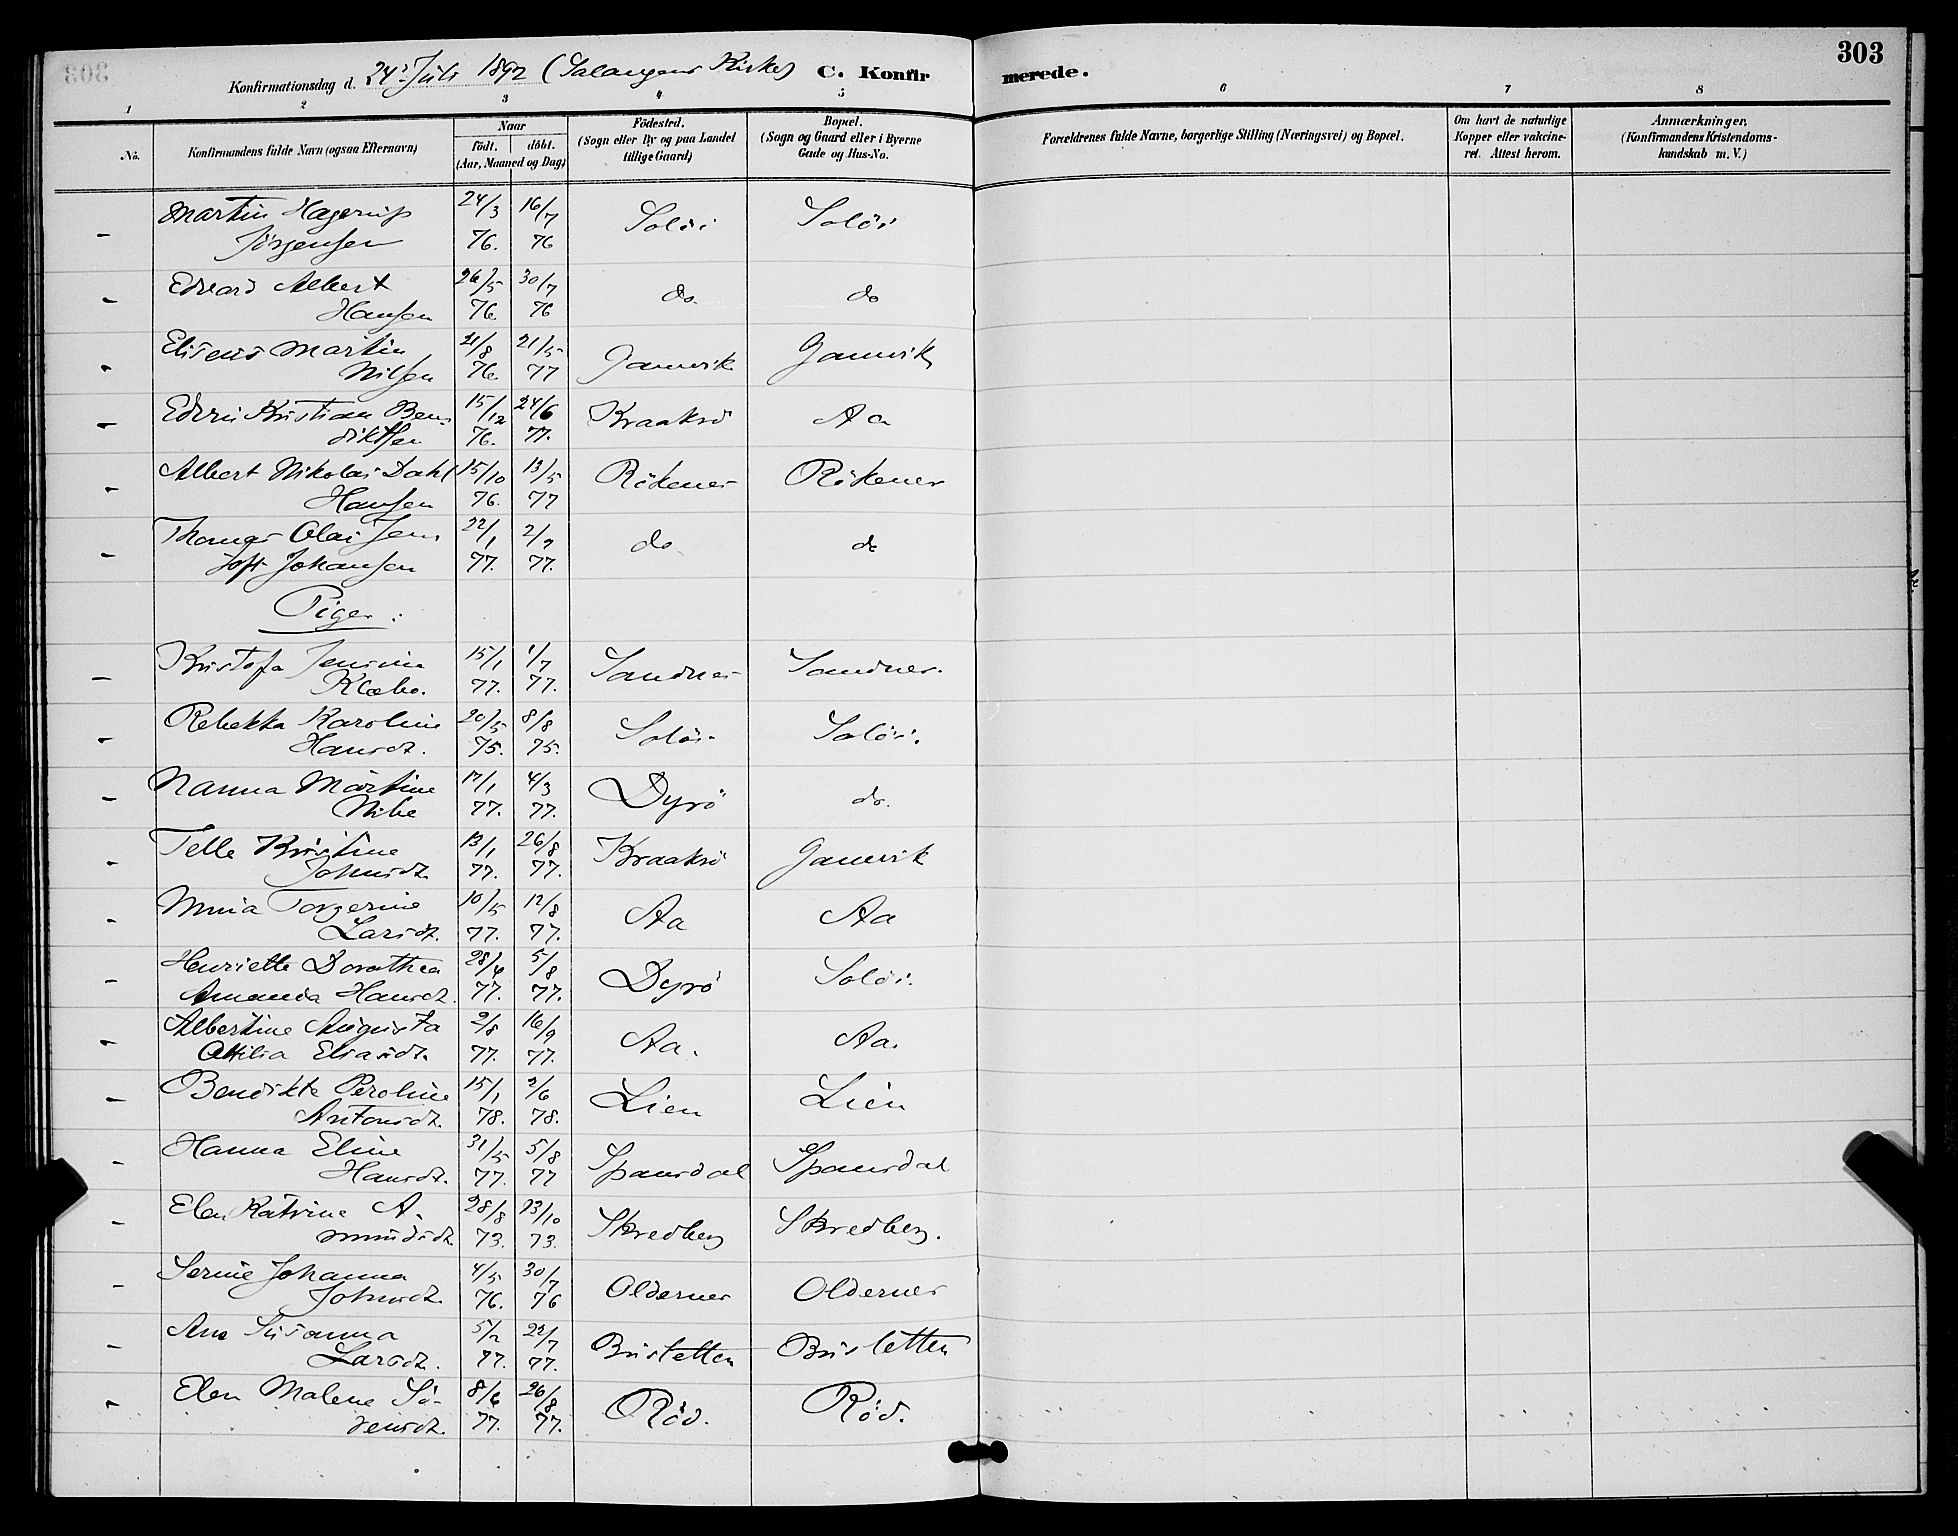 303
Konfirmationsdag d. 24de Juli 1892 (Salangens Kirke) C. Konfirmerede.
1 2 3 4 5 6 7 8
No. Konfirmandens fulde Navn (ogsaa Efternavn) Naar født. døbt. (Aar, Maaned og Dag) Fødested. (Sogn eller By og paa Landet tillige Gaard) Bopæl. (Sogn og Gaard eller i Byerne Gade og Hus-No. Forældrenes fulde Navne, borgerlige Stilling (Næringsvei) og Bopæl. Om havt de naturlige Kopper eller vakcineret. Attest herom. Anmærkninger, (Konfirmandens Kristendomskundskab m. V.)
- Martin Hagerup 24/3 16/7 Soløi Soløi
Jörgensen 76. 76
- Edvard Albert 26/5 30/7 do. do
Hansen 76 76
- Eliseus Martin 21/8 21/5 Gamvik Gamvik
Nilsen 76 77
- Edvin Kristian Ben- 15/12 24/6 Kraaksö Aa
diktsen 76. 77.
- Albert Nikolai Dahl 15/10 13/5 Rökenes Rökenes
Hansen 76. 77
- Thomas Olai Jens 22/1 2/7 do do
Johansen 77. 77.
Piger:
- Kristofa Jensine 15/1 1/7 Sandnes Sandnes.
Klæbo. 77. 77.
- Rebekka Karoline 20/5 8/8 Soløi Soløi.
Hansdt. 75. 75.
- Nanna Martine 17/1 4/3 Dyrö do.
Nibe 77. 77.
- Telle Kristine 13/1 26/8 Kraaksö Gamvik
Johnsdt. 77. 77.
- Mina Torgerine 10/5 12/8 Aa Aa
Larsdt. 77. 77.
- Henriette Dorothea 28/6 5/8 Dyrö Soløi.
Amanda Hansdt. 77. 77.
- Albertine Augusta 2/8 16/9 Aa. Aa.
Otilia Eliasdt. 77. 77.
- Bendikte Peroline 15/1 2/6 Lien Lien
Antonsdt. 78. 78.
- Hanna Eline 31/5 5/8 Spansdal Spansdal
Hansdt. 77. 77
- Elen Katrine A- 28/8 13/10 Skredberg Skredberg.
mundsdt. 73. 73.
- Serine Johanna 4/5 30/7 Oldernes Oldernes
Johnsdt. 76. 76
- Ane Susanna 5/2 22/7 Brusletten Brusletten
Larsdt. 77. 77.
- Elen Malene Sö- 8/6 26/8 Röd. Röd.
rensdt. 77. 77.